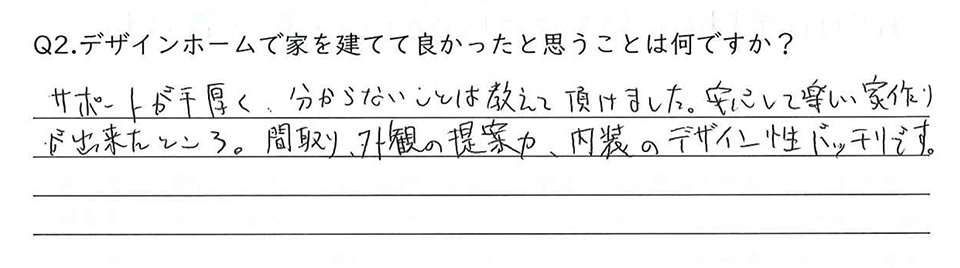 Q2.デザインホームで家を建てて良かったと思うことは何ですか？
サポートが手厚く、分からないことは教えて頂けました。安心して楽しい家作り
が出来たところ。間取り、外観の提案力、内装のデザイン性バッチリです。